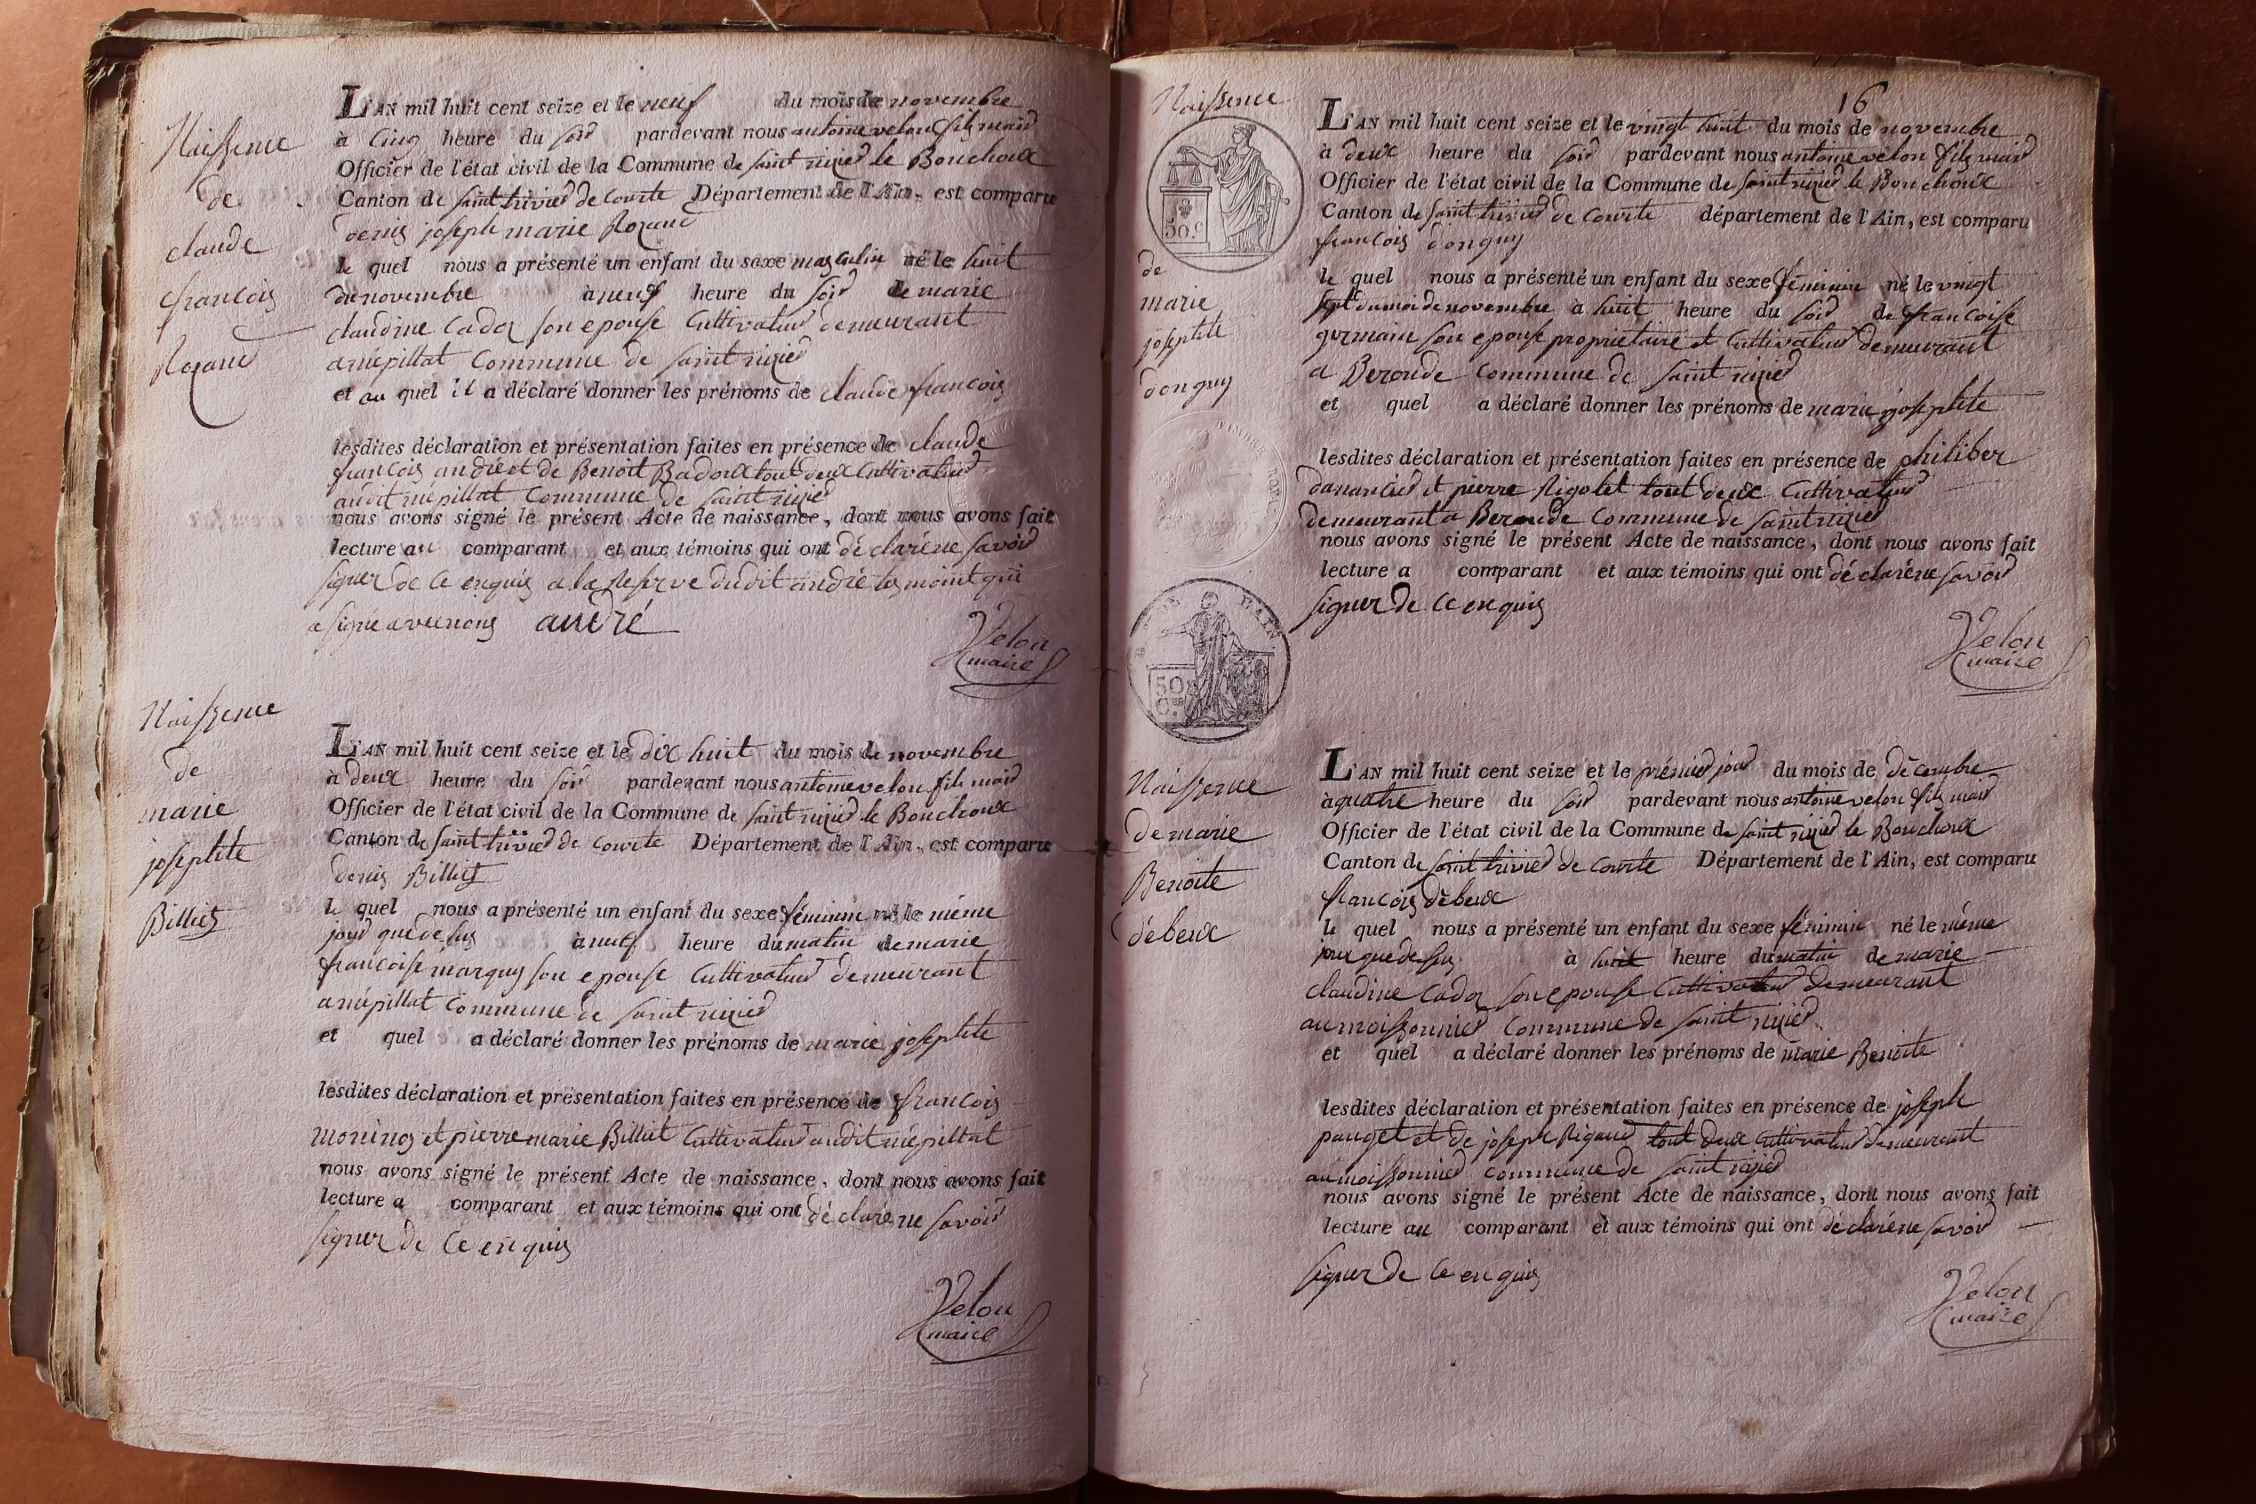 Naissence
de
claude
francois
Rozand
L'AN mil huit cent seize et le neuf du mois de novembre
à cinq heure du soir pardevant nous antoine velon fils maire
Officier de l'état civil de la Commune de saint nizier le Bouchoux
Canton de saint trivier de courte Département de l'Ain, est comparu
denis joseph marie Rozand
le quel nous a présenté un enfant du sexe masculin né le huit
du novembre à neuf heure du soir de marie
claudine Cadoz son epouse Cultivateur demeurant
a nepillat Commune de saint nizier
et au quel il a déclaré donner les prénoms de claude francois
lesdites déclaration et présentation faites en présence de claude
francois andré et de Benoit Badoux tout deux Cultivateur
audit népillat Commune de saint nizier
nous avons signé le présent Acte de naissance, dont nous avons fait
lecture au comparant et aux témoins qui ont déclaré ne savoir
signer de ce enquis a la reserve dudit andré tesmoint qui
a signé avec nous andré
Velon
maire
Naissence
de
marie
josephte
Billiet
L'AN mil huit cent seize et le dix huit du mois de novembre
à deux heure du soir pardevant nous antoine velon fils maire
Officier de l'état civil de la Commune de saint nizier le Bouchoux
Canton de saint trivier de courte Département de l'Ain, est comparu
denis Billiet
le quel nous a présenté un enfant du sexe féminin né le même
jour que desus à neuf heure du matin de marie
francoise marguy son epouse Cultivateur demeurant
a népillat Commune de saint nizier
et quel a déclaré donner les prénoms de marie josephte
lesdites déclaration et présentation faites en présence de francois
moninoz et pierre marie Billiet Cultivateur audit népillat
nous avons signé le présent Acte de naissance, dont nous avons fait
lecture a comparant et aux témoins qui ont déclaré ne savoir
signer de ce enquis
Velon
maire
16
Naissence
50.c
de
marie
josephte
donguy
L'AN mil huit cent seize et le vingt huit du mois de novembre
à deux heure du soir pardevant nous antoine velon fils maire
Officier de l'état civil de la Commune de saint nizier le Bouchoux
Canton de saint trivier de courte département de l'Ain, est comparu
francois donguy
le quel nous a présenté un enfant du sexe féminin né le vingt
sept du moi de novembre à huit heure du soir de francoise
germain son epouse propriétaire et Cultivateur demeurant
a Beroude commune de saint nizier
et quel a déclaré donner les prénoms de marie josephte
lesdites déclaration et présentation faites en présence de philiber
dananché et pierre Rigolet tout deux Cultivateur
demeurant a Beroude Commune de saint nizier
nous avons signé le présent Acte de naissance, dont nous avons fait
lecture a comparant et aux témoins qui ont déclaré ne savoir
signer de ce enquis
Velon
maire
50
Naissence
de marie
Benoite
débeux
L'AN mil huit cent seize et le prémier jour du mois de décembre
à quatre heure du soir pardevant nous antoine velon fils maire
Officier de l'état civil de la Commune de saint nizier le Bouchoux
Canton de saint trivier de courte Département de l'Ain, est comparu
francois débeux
le quel nous a présenté un enfant du sexe féminin né le même
jour que desus à huit heure du matin de marie
claudine Cadoz son epouse Cultivateur demeurant
au moissonnier Commune de saint nizier
et quel a déclaré donner les prénoms de marie Benoite
lesdites déclaration et présentation faites en présence de joseph
pauget et de joseph Rigaud tout deux Cultivateur demeurant
au moissonnier commune de saint nizier
nous avons signé le présent Acte de naissance, dont nous avons fait
lecture au comparant et aux témoins qui ont déclaré ne savoir
signer de ce enquis
Velon
maire